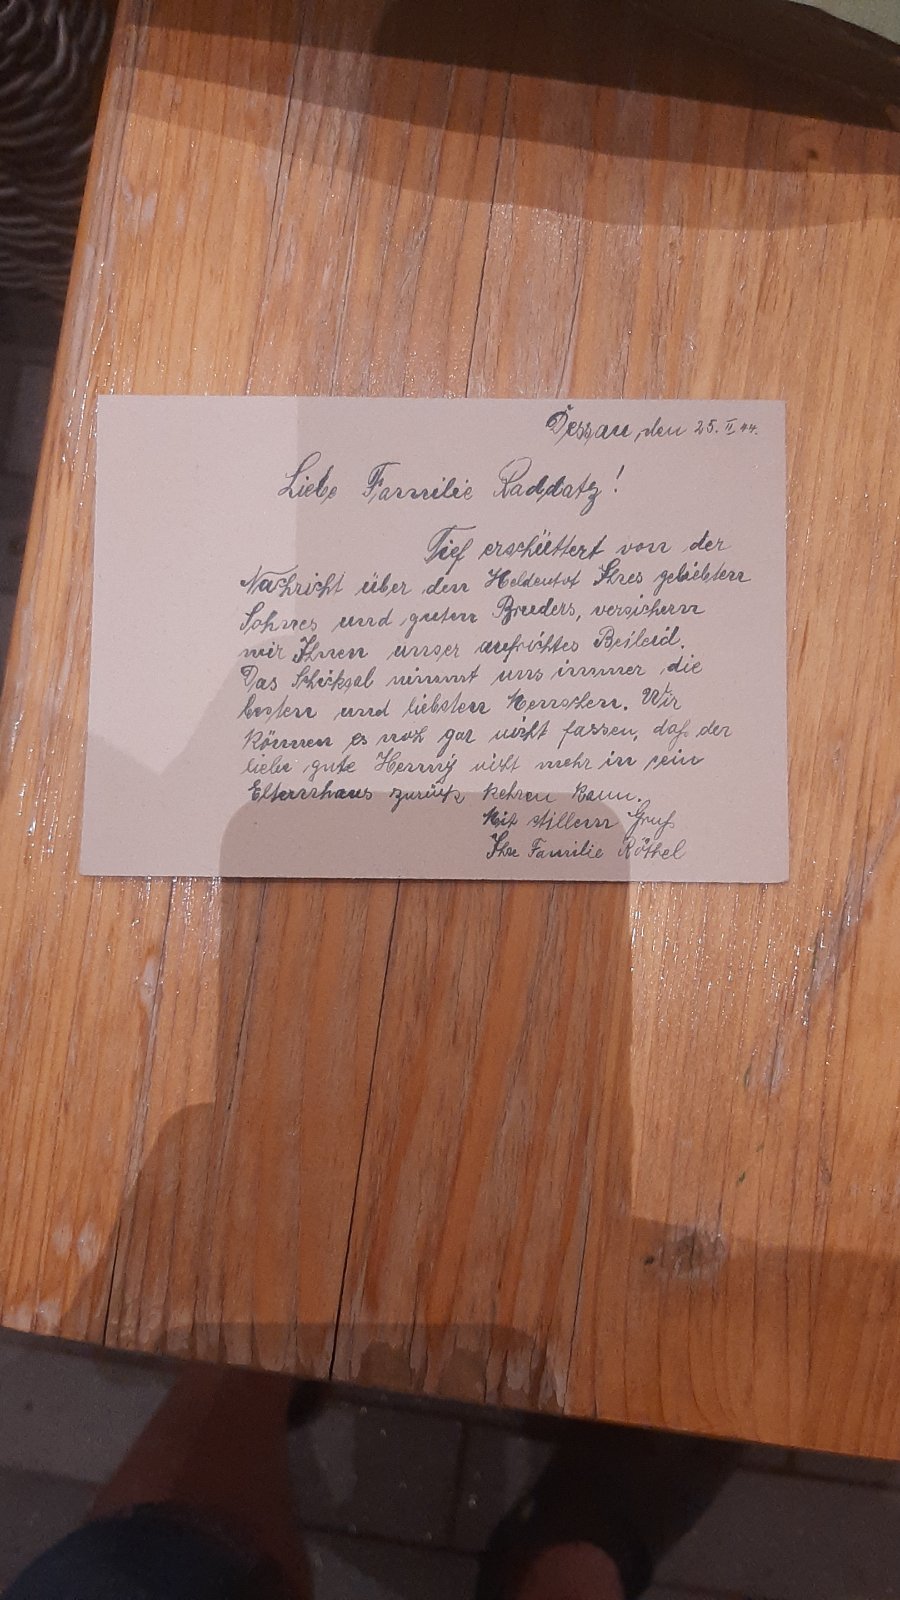 Dessau, den 25. II 44.
Liebe Familie Raddatz!
Tief erschüttert von der
Nachricht über den Heldentot Ihres geliebten
Sohnes und guten Bruders, versichern
wir Ihnen unser aufrichtes Beileid.
Das Schicksal nimmt uns immer die
besten und liebsten Menschen. Wir
können es noch gar nicht fassen, daß der
liebe gute Henny nicht mehr in sein
Elternhaus zurück kehren kann.
Mit stillem Gruß
Ihre Familie Röthel